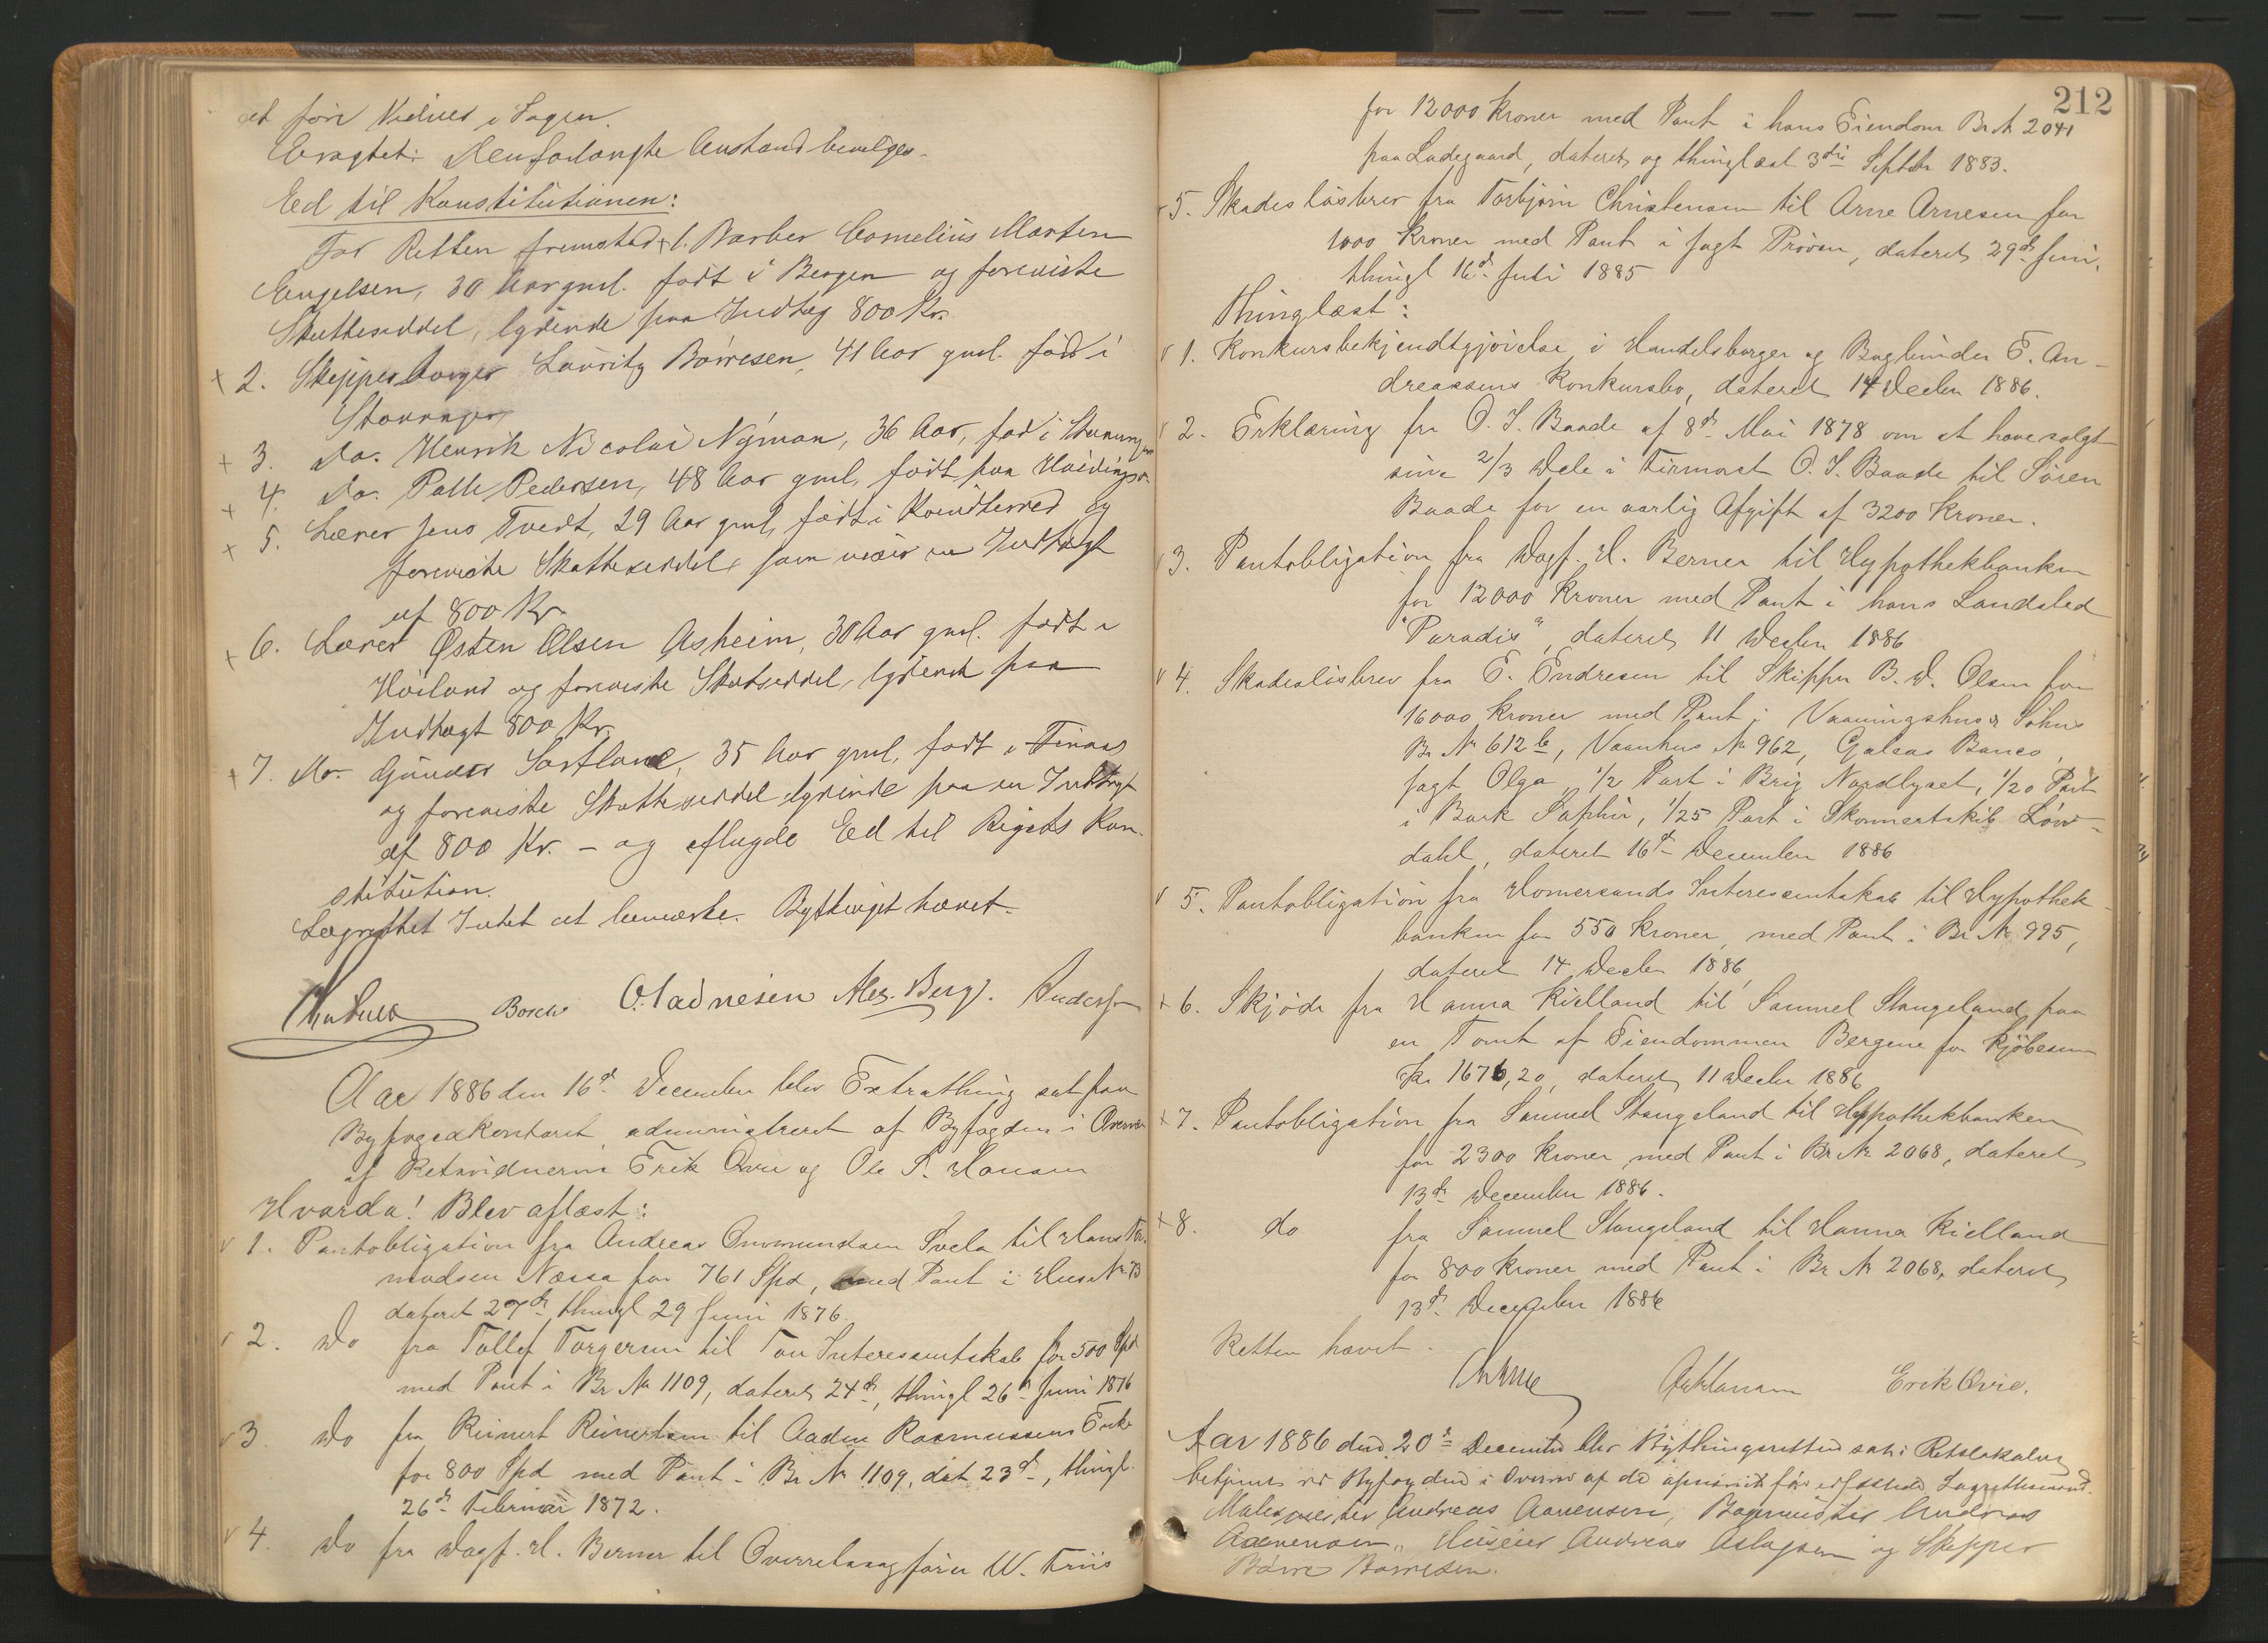 at føre Vidner i Sagen.
Eragtet: Den forlangte Anstand bevilges.
Ed til Konstitutionen:
For Retten fremstod 1. Barber Cornelius Marten
Engelsen, 30 Aar gml. født i Bergen og foreviste
Skatteseddel, lydende paa Indtæg 800 Kr.
2. Skipperborger Lauritz Børresen, 41 Aar gml. født i
Stavanger
3. Do. Henrik Nicolai Nyman, 36 Aar, fød i Stavanger
4. Do. Palle Pedersen, 48 Aar gml, født paa
5. Lærer Jens Tvedt, 29 Aar gml, født i Kvindherred og
foreviste Skatteseddel, som viser en Indtægt
af 800 Kr
6. Lærer Østen Olsen Asheim, 30 Aar gml. født i
Høiland og foreviste Skatseddel, lydende paa
Indtægt 800 Kr.
7. Do. Gunder Sortland, 35 Aar gml, født i Finaas
og foreviste Skatteseddel lydende paa en Indtægt
af 800 Kr. – og aflagde Ed til Rigets Kon-
stitution.
Lagrettet Intet at bemærke. Bythinget hævet.
O. Tadnesen Alex. Berg.
Aar 1886 den 16d December blev Extrathing sat paa
Byfogedkontoret, administreret af Byfogden i Overvær
af Retsvidnerne Erik Qvie og Ole S. Hanam
Hvorda! Blev aflæst:
1. Pantobligation fra Andreas Ommundsen Svela til Hans Kn.
mudsen Næssa for 761 Spd, med Pant i Hus No 73
dateret 27de thingl 29 Juni 1876.
2. Do fra Tollef Torgersen til Tou Interessentskab for 500 Spd
med Pant i Br No 1109, dateret 24de, thingl 26de Juni 1876
3. Do fra Reinert Reinertsen til Aaden Rasmussens Enke
for 800 Spd med Pant i Br No 1109, dat 23d, thingl.
26de Februar 1872.
4. Do fra Dagf. H. Berner til Overretssagfører W. Friis
212
for 12000 Kroner med Pant i hans Eiendom Br No 2041
paa Ladegaard, dateret og thinglæst 3die Septbr 1883.
5. Skadesløsbrev fra Torbjørn Christensen til Arne Arnesen for
1000 Kroner med Pant i Jagt Prøven, dateret 29de Juni,
thingl 16d Juli 1885
Thinglæst:
1. Konkursbekjendtgjørelse i Handelsborger og Bogbinder E. An-
dreassens Konkursbo, dateret 14 Decbr 1886.
2. Erklæring fra O. J. Baade af 8de Mai 1878 om at have solgt
sine 2/3 Dele i Firmaet O. J. Baade til Søren
Baade for en aarlig Afgift af 3200 Kroner.
3. Pantobligation fra Dagf. H. Berner til Hypothekbanken
for 12000 Kroner med Pant i hans Landsted
"Paradis", dateret 11 Decbr 1886
4. Skadesløsbrev fra E. Endresen til Skipper B. D. Olsen for
16000 Kroner med Pant i Vaaningshus & Søhus
Br No 612b, Vaanhus No 962, Galeas Banco,
Jagt Olga, 1/2 Part i Brig Nordlyset, 1/20 Part
i Bark Saphir, 1/25 Part i Skonnertskib Løv-
dahl, dateret 16de December 1886
5. Pantobligation fra Homersands Interessentskab til Hypothek-
banken for 550 Kroner, med Pant i Br No 995,
dateret 14 Decbr 1886
6. Skjøde fra Hanna Kielland til Samuel Stangeland paa
en Tomt af Eiendommen Bergene for Kjøbesum
Kr 1676,20, dateret 11 Decbr 1886
7. Pantobligation fra Samuel Stangeland til Hypothekbanken
for 2300 Kroner med Pant i Br No 2068, dateret
13de December 1886.
8. do fra Samuel Stangeland til Hanna Kielland
for 800 Kroner med Pant i Br No 2068, dateret
13de December 1886
Retten hævet.
Erik Qvie.
Aar 1886 den 20de December blev Bythingsretten sat i Retslokalet
betjent ved Byfogden i Overvær af de opnævnte før edfæstede Lagrettesmænd.
Malermester Andreas Aanensen, Bagermester Andreas
Aanensen, Huseier Andreas Aslagsen og Skipper
Børre Børresen.